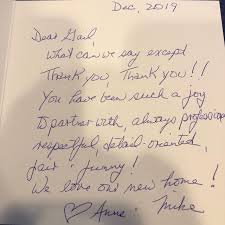 Dec, 2019
Dear Gail,
What can we say except
Thank you, Thank you!!
You have been such a joy
to partner with, always professional
respectful, detail-oriented,
fair & funny!
We love our new home!
♡ Anne & Mike